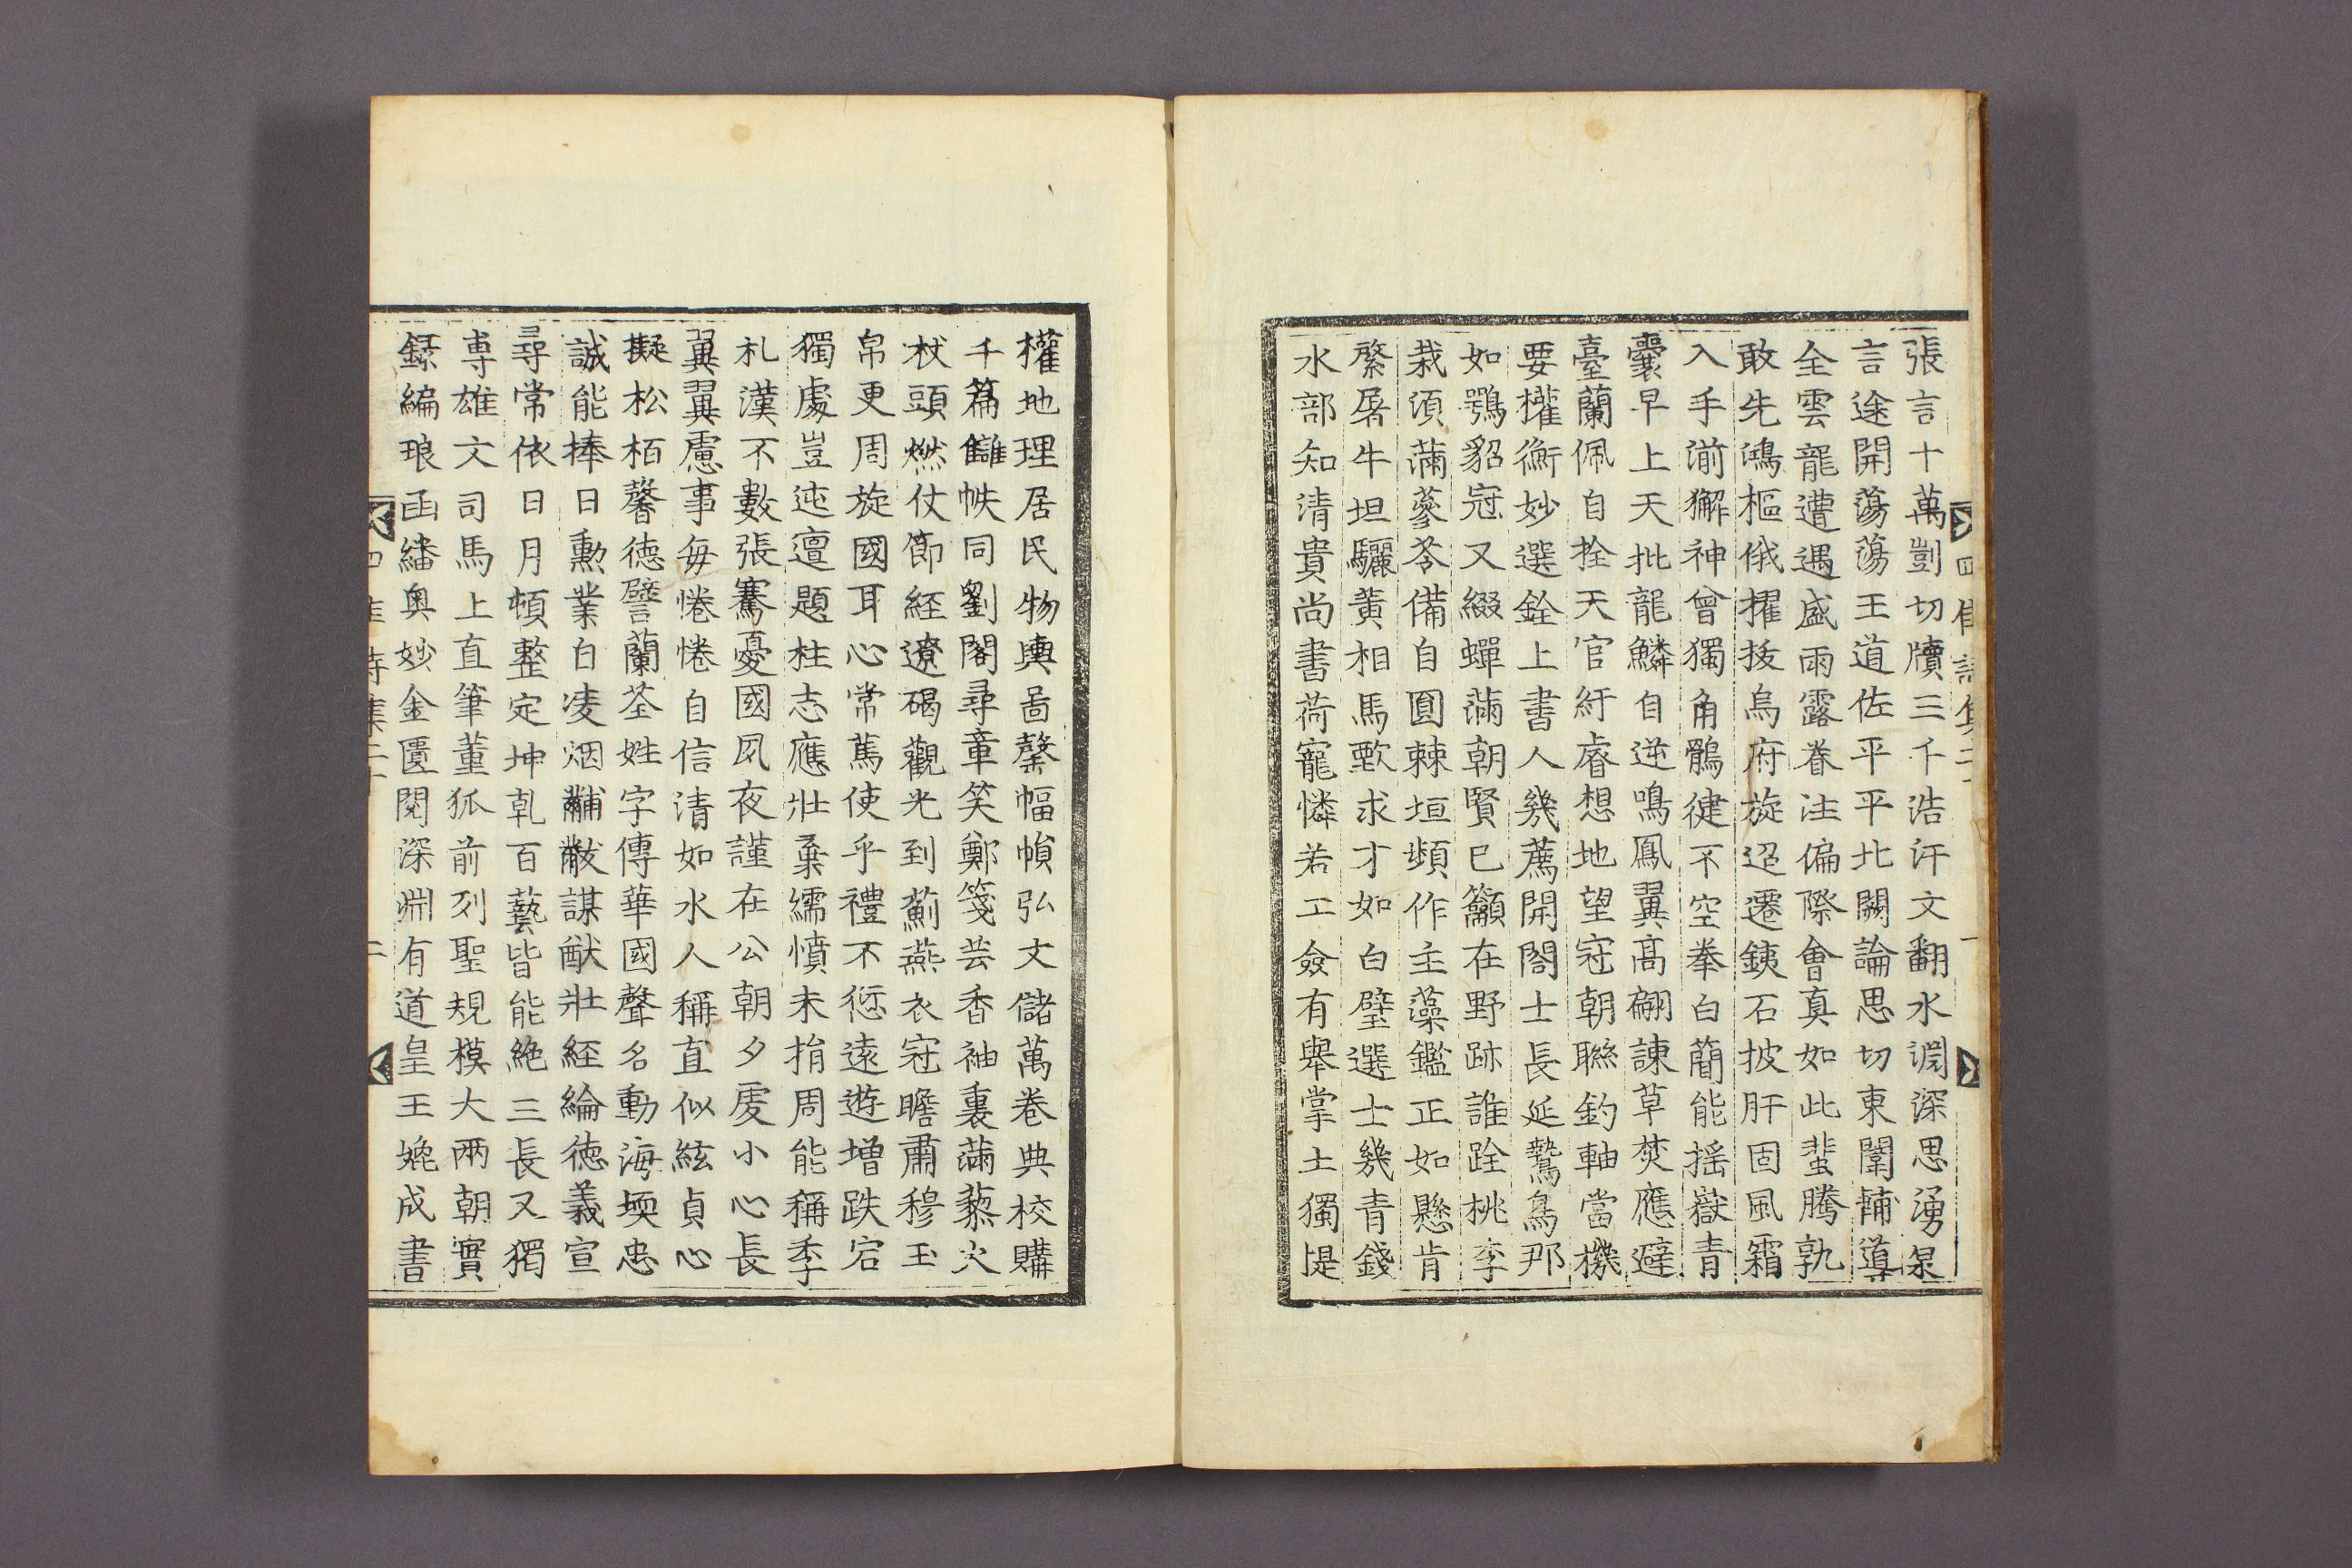 張言十萬剴切牘三千浩汗文翻水淵深思湧泉
言途開蕩蕩王道佐平平北闕論思切東闈輔導
全雲龍遭遇盛雨露眷注偏際會真如此蜚騰孰
敢先鴻樞俄擢拔烏府旋迢遷鐵石披肝固風霜
入手湔獬神曾獨角鶻健不空拳白簡能搖嶽青
囊早上天批龍鱗自逆鳴鳳翼高翩諫草焚應避
臺蘭佩自拴天官紆睿想地望冠朝聯釣軸當機
要權衡妙選銓上書人幾薦開閤士長延鷙鳥那
如鶚貂冠又綴蟬滿朝賢已籲在野跡誰跧桃李
栽須滿蔘苓備自圓棘垣頻作主藻鑑正如懸肯
縻屠牛坦驪黃相馬甄求才如白璧選士幾青錢
水部知清貴尚書荷寵憐若工僉有舉掌土獨堤
權地理居民物輿啚罄幅幀弘文儲萬卷典校購
千篇讎帙同劉閣尋章笑鄭箋芸香袖裏滿藜火
杖頭燃仗節經遼碣觀光到薊燕衣冠瞻肅穆玉
帛更周旋國耳心常篤使乎禮不愆遠遊增跌宕
獨處豈迍邅題柱志應壯棄繻憤未捐周能稱季
札漢不數張騫憂國夙夜謹在公朝夕虔小心長
翼翼慮事每惓惓自信清如水人稱直似絃貞心
擬松栢馨德譬蘭荃姓字傳華國聲名動海堧忠
誠能捧日勳業白凌烟黼黻謀猷壯經綸德義宣
尋常依日月頓整定坤乹百藝皆能絕三長又獨
專雄文司馬上直筆董狐前列聖規模大兩朝實
錄編琅函繙奥妙金匱閱深淵有道皇王媲成書